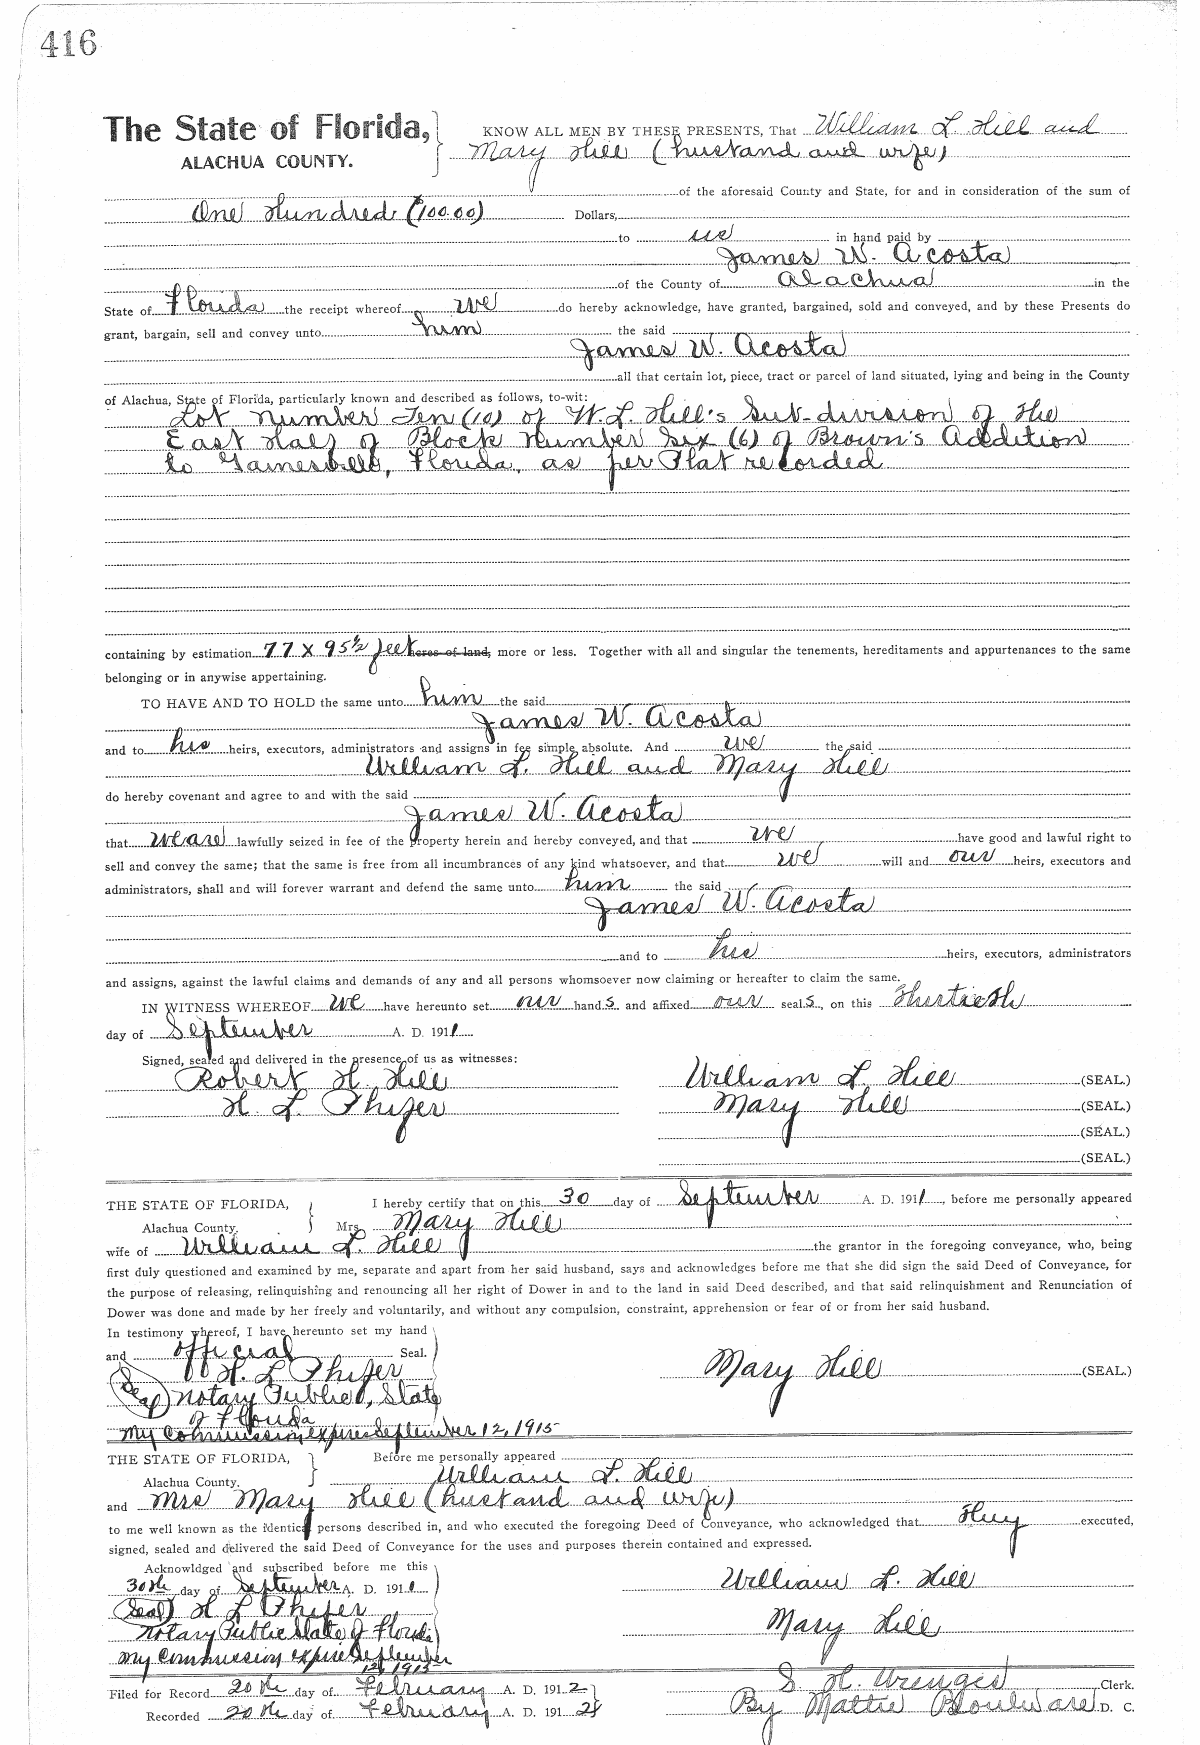 416
The State of Florida, KNOW ALL MEN BY THESE PRESENTS, That William L. Hill and
ALACHUA COUNTY. Mary Hill (husband and wife)
of the aforesaid County and State, for and in consideration of the sum of
One Hundred ($100.00) Dollars,
to us in hand paid by
James W. Acosta
of the County of Alachua in the
State of Florida the receipt whereof we do hereby acknowledge, have granted, bargained, sold and conveyed, and by these Presents do
grant, bargain, sell and convey unto him the said
James W. Acosta
all that certain lot, piece, tract or parcel of land situated, lying and being in the County
of Alachua, State of Florida, particularly known and described as follows, to-wit:
Lot Number Ten (10) of W. L. Hill's Sub-division of the
East Half of Block Number Six (6) of Brown's Addition
to Gainesville, Florida, as per Plat recorded
containing by estimation 77 x 95½ feet acres of land, more or less. Together with all and singular the tenements, hereditaments and appurtenances to the same
belonging or in anywise appertaining.
TO HAVE AND TO HOLD the same unto him the said
James W. Acosta
and to his heirs, executors, administrators and assigns in fee simple absolute. And we the said
William L. Hill and Mary Hill
do hereby covenant and agree to and with the said
James W. Acosta
that we are lawfully seized in fee of the property herein and hereby conveyed, and that we have good and lawful right to
sell and convey the same; that the same is free from all incumbrances of any kind whatsoever, and that we will and our heirs, executors and
administrators, shall and will forever warrant and defend the same unto him the said
James W. Acosta
and to his heirs, executors, administrators
and assigns, against the lawful claims and demands of any and all persons whomsoever now claiming or hereafter to claim the same.
IN WITNESS WHEREOF we have hereunto set our hand s and affixed our seal s, on this Thirtieth
day of September A. D. 1911
Signed, sealed and delivered in the presence of us as witnesses:
Robert H. Hill William L. Hill (SEAL.)
H. L. Phifer Mary Hill (SEAL.)
(SEAL.)
(SEAL.)
THE STATE OF FLORIDA, I hereby certify that on this 30 day of September A. D. 1911, before me personally appeared
Alachua County. Mrs. Mary Hill
wife of William L. Hill the grantor in the foregoing conveyance, who, being
first duly questioned and examined by me, separate and apart from her said husband, says and acknowledges before me that she did sign the said Deed of Conveyance, for
the purpose of releasing, relinquishing and renouncing all her right of Dower in and to the land in said Deed described, and that said relinquishment and Renunciation of
Dower was done and made by her freely and voluntarily, and without any compulsion, constraint, apprehension or fear of or from her said husband.
In testimony whereof, I have hereunto set my hand
and official Seal.
H. L. Phifer Mary Hill (SEAL.)
(Seal) Notary Public, State
of Florida
My Commission expires September 12, 1915
THE STATE OF FLORIDA, Before me personally appeared
Alachua County. William L. Hill
and Mrs Mary Hill (husband and wife)
to me well known as the identical persons described in, and who executed the foregoing Deed of Conveyance, who acknowledged that they executed,
signed, sealed and delivered the said Deed of Conveyance for the uses and purposes therein contained and expressed.
Acknowldged and subscribed before me this
30th day of September A. D. 1911 William L. Hill
(Seal) H L Phifer
Notary Public State of Florida Mary Hill
My Commission expires September
12, 1915
Filed for Record 20th day of February A. D. 1912 S. H. Wienges Clerk.
Recorded 20th day of February A. D. 191 2 By Mattie Boulware D. C.